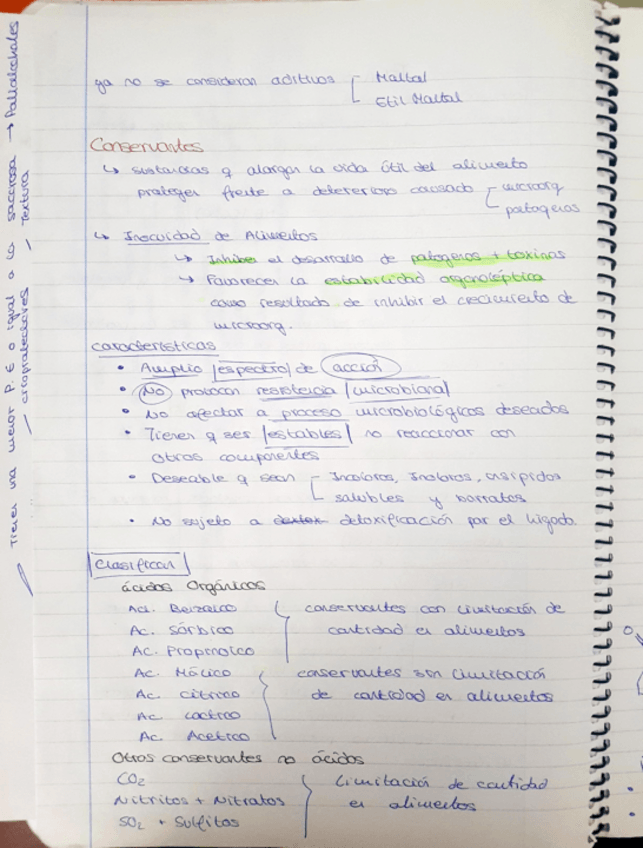 ya no se consideran aditivos Maltol
Etil Maltol
Conservantes
↳ sustancias q alargan la vida útil del alimento
protegen frente a deterioros causado microorg
patogenos
↳ Inocuidad de Alimentos
↳ Inhiben el desarrollo de patogenos + toxinas
→ Favorecen la estabilidad organoléptica
como resultado de inhibir el crecimiento de
microorg.
características
• Amplio espectro de acción
• No provocan resistencia microbiana
• No afectar a proceso microbiológicos deseados
• Tienen q ser estables no reaccionar con
otros componentes
• Deseable q sean Incoloros, Inoloros, insipidos
solubles y borratos
• No sujeto a detoxificación por el hígado.
Clasifican
ácidos Orgánicos
Act. Benzoico conservantes con limitación de
Ac. Sórbico cantidad en alimentos
Ac. Propinoico
Ac. Málico conservantes sin limitación
Ac. cítrico de cantidad en alimentos
Ac lactico
Ac. Acetico
Otros conservantes no ácidos
CO2 Limitación de cantidad
Nitritos + Nitratos en alimentos
SO2 + Sulfitos
Tienen una menor P. E o igual a la sacarosa → Polialcoholes
/ crioprotectores / Textura